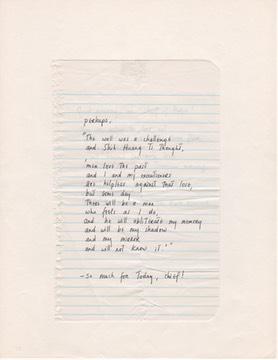 perhaps,
"The wall was a challenge
and Shih Huang Ti thought,
'men love the past
and I and my executioners
are helpless against that love,
but some day
there will be a man
who feels as I do,
and he will obliterate my memory
and will be my shadow
and my mirror
and will not know it.'"
—so much for Today, chief!